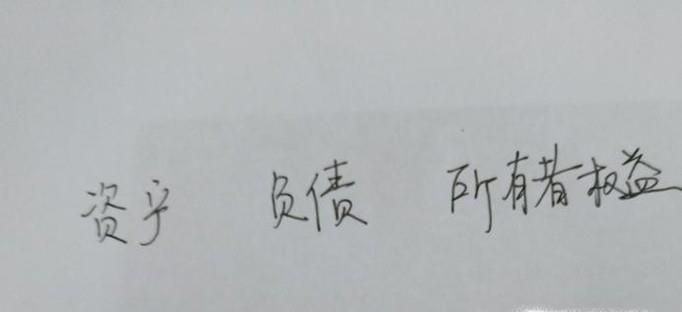 资产 负债 所有者权益